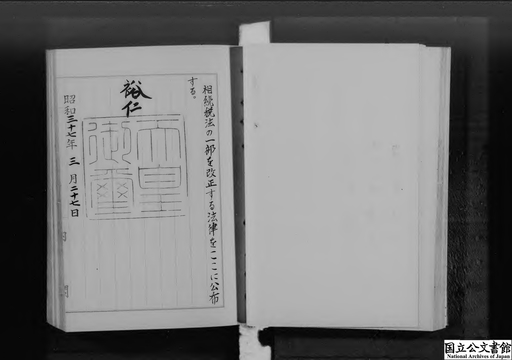 相続税法の一部を改正する法律をここに公布
する。
裕仁
天皇
御璽
昭和三十七年三月二十七日
国立公文書館
National Archives of Japan